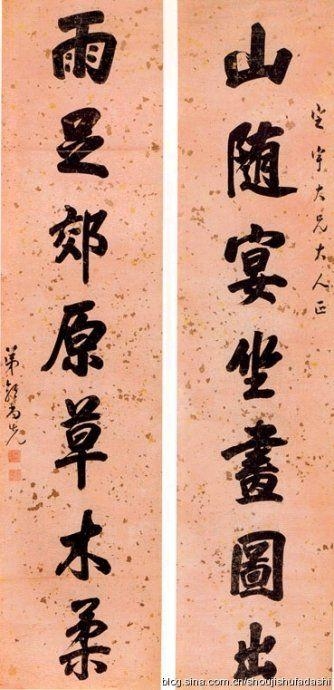 宇大兄大人正
山随宴坐畫圖出
雨足郊原草木柔
弟郭尚先
blog.sina.com.cn/shoujishufadashi